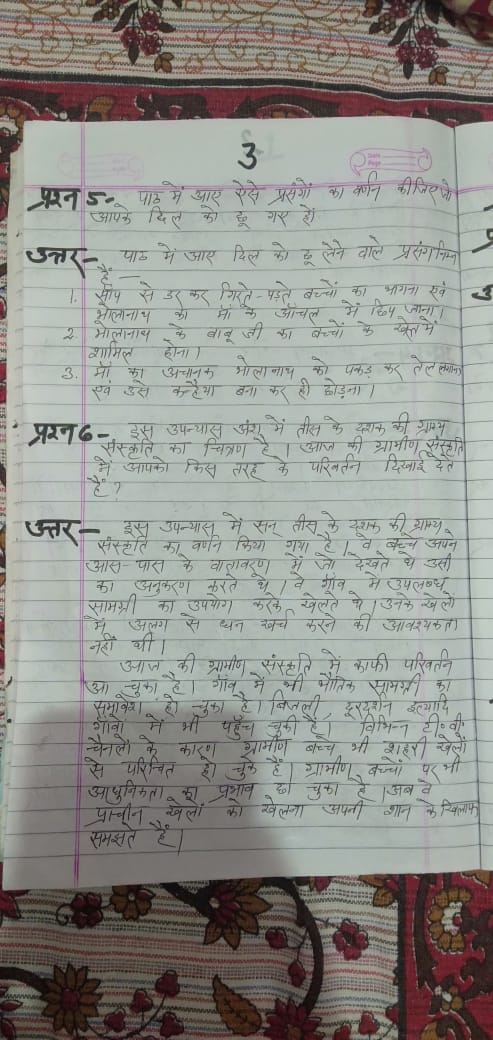 3
Date
Page
प्रश्न 5- पाठ में आए ऐसे प्रसंगों का वर्णन कीजिए जो
आपके दिल को छू गए हों
उत्तर- पाठ में आए दिल को छू लेने वाले प्रसंग निम्न
हैं-
1. साँप से डर कर गिरते-पड़ते बच्चों का भागना एवं
भोलानाथ का माँ के आँचल में छिप जाना।
2. भोलानाथ के बाबू जी का बच्चों के खेल में
शामिल होना।
3. माँ का अचानक भोलानाथ को पकड़ कर तेल लगाना
एवं उसे कन्हैया बना कर ही छोड़ना।
प्रश्न 6- इस उपन्यास अंश में तीस के दशक की ग्राम्य
संस्कृति का चित्रण है। आज की ग्रामीण संस्कृति
में आपको किस तरह के परिवर्तन दिखाई देते
हैं?
उत्तर- इस उपन्यास में सन् तीस के दशक की ग्राम्य
संस्कृति का वर्णन किया गया है। वे बच्चे अपने
आस-पास के वातावरण में जो देखते थे उसी
का अनुकरण करते थे। वे गाँव में उपलब्ध
सामग्री का उपयोग करके खेलते थे। उनके खेलों
में अलग से धन खर्च करने की आवश्यकता
नहीं थी।
आज की ग्रामीण संस्कृति में काफी परिवर्तन
आ चुका है। गाँव में भी भौतिक सामग्री का
समावेश हो चुका है। बिजली, दूरदर्शन इत्यादि
गाँवों में भी पहुँच चुकी हैं। विभिन्न टी॰वी॰
चैनलों के कारण ग्रामीण बच्चे भी शहरी खेलों
से परिचित हो चुके हैं। ग्रामीण बच्चों पर भी
आधुनिकता का प्रभाव छा चुका है। अब वे
प्राचीन खेलों को खेलना अपनी शान के खिलाफ
समझते हैं।